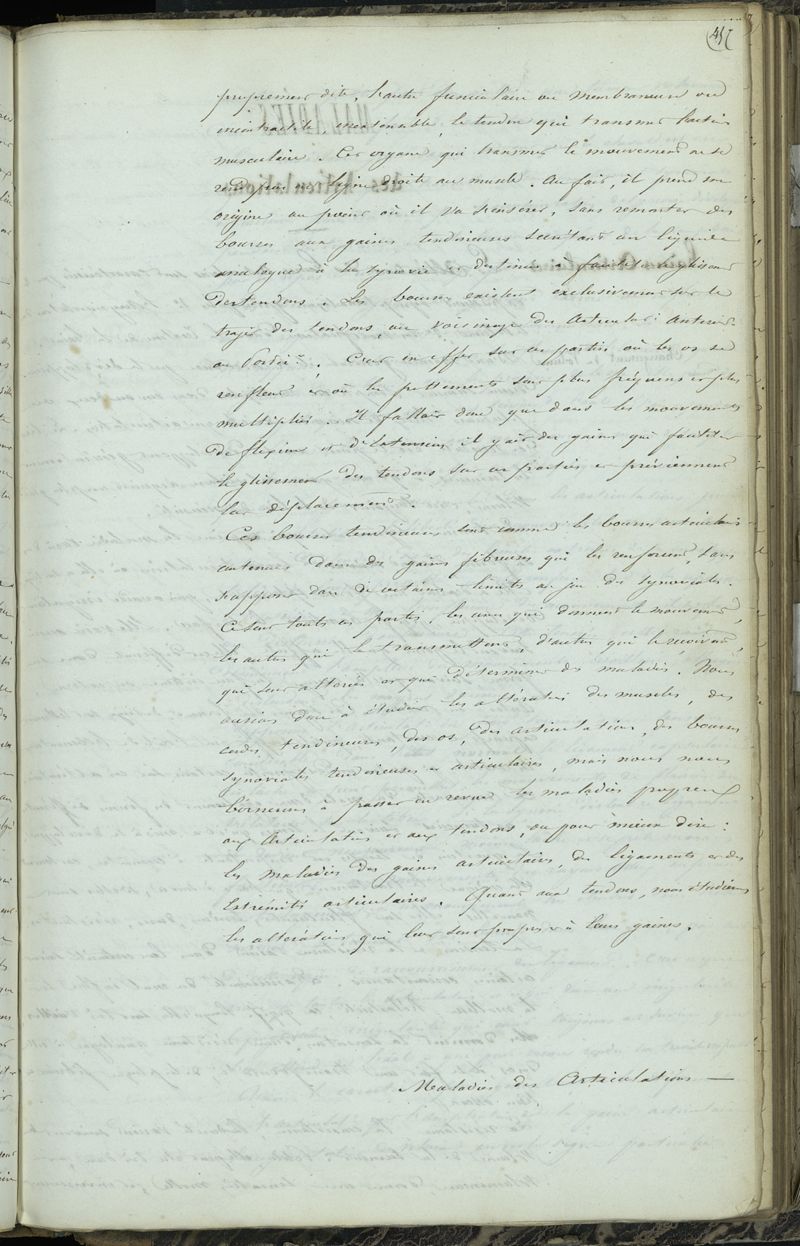 457
proprement dite, l'autre funiculaire ou membraneuse ou
incontractile, inextensible, le tendon qui transmet l'action
musculaire. Cet organe qui transmet le mouvement ne se
rend pas en ligne droite au muscle. Au fait, il prend son
origine au point où il va s'insérer, sans remonter des
bourses aux gaines tendineuses sécrétant un liquide
analogue à la synovie et destinée à faciliter
des tendons. Les bourses existent exclusivement sur le
trajet des tendons, au voisinage des articulat: antérre
ou postérre. C'est en effet sur ces parties où les os se
renflent et où les frottements sont plus fréquens et plus
multipliés. Il fallait donc que dans les mouvements
de flexion et d'extension il y ait des gaines qui facilitent
le glissement des tendons sur ces parties et préviennent
leur déplacement.
Ces bourses tendineuses sont comme les bourses articulaires
contenues dans des gaines fibreuses qui les renforcent, sans
s'opposer dans de certaines limites au jeu des synoviales.
Ce sont toutes ces parties, les unes qui donnent le mouvement,
les autres qui le transmettent, d'autres qui le reçoivent,
qui sont altérées et que déterminent des maladies. Nous
aurions donc à étudier les altérations des muscles, des
cordes tendineuses, des os, des articulations, des bourses
synoviales tendineuses et articulaires, mais nous nous
bornerons à passer en revue les maladies propres
aux articulations et aux tendons, ou pour mieux dire:
les maladies des gaines articulaires, des ligaments et des
extrémités articulaires. Quant aux tendons, nous étudierons
les altérations qui leur sont propres et à leurs gaines.
Maladies des Articulations —